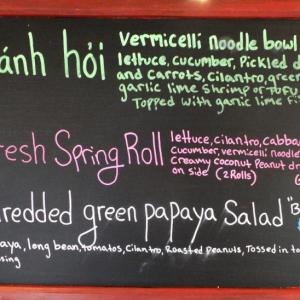 ánh hỏi vermicelli noodle bowl
lettuce, cucumber, Pickled d
and carrots, cilantro, green
garlic lime shrimp or tofu
Topped with garlic lime fi
resh Spring Roll lettuce, cilantro, Cabba
cucumber, vermicelli noodle
creamy coconut Peanut dr
on side (2 Rolls)
redded green papaya Salad "B
aya, long bean, tomatos, Cilantro, Roasted Peanuts, Tossed in ta
sing